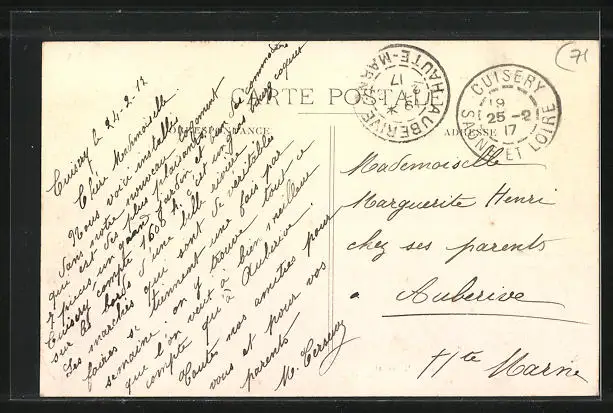 71
CARTE POSTALE
CORRESPONDANCE
ADRESSE
CUISERY
19
25-2
17
SAONE ET LOIRE
AUBERIVE
HAUTE-MARNE
17
Cuisery le 24-2-17
Chère Mademoiselle.
Nous voici installés
dans notre nouveau logement
qui est des plus plaisants
7 pièces, un grand jardin et des commodités
Cuisery compte 1600 h. c'est un gros bourg coquet
sur les bords d'une belle rivière
Les marchés qui sont de véritables
foires se tiennent une fois par
semaine, on y trouve tout ce
que l'on veut à bien meilleur
compte qu'à Auberive.
Toutes nos amitiés pour
vous et pour vos
parents
Mademoiselle
Marguerite Henri
chez ses parents
a Auberive
Hte Marne